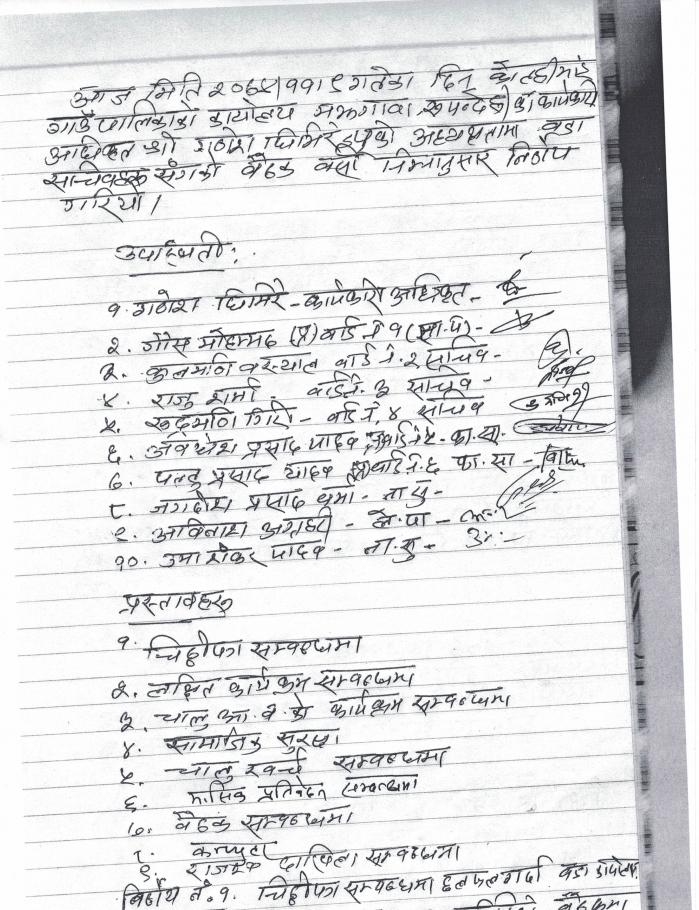 आज मिति २०७४।११।९ गतेका दिन कोटहीमाई
गाउँपालिकाको कार्यालय मझगावा, रूपन्देही का कार्यकारी
अधिकृत श्री गणेश घिमिरे ज्यूको अध्यक्षतामा वडा
सचिवहरू सँगको बैठक बसी निम्नानुसार निर्णय
गरियो।
उपस्थिती:
१. गणेश घिमिरे - कार्यकारी अधिकृत -
२. गौस मोहम्मद (प्र) वार्ड नं १ (प्रा.प) -
३. कुलमणि वस्याल वार्ड नं. २ सचिव -
४. राजु शर्मा - वार्ड नं. ३ सचिव -
५. रूद्रमणि गिरी - वार्ड नं. ४ सचिव
६. अवधेश प्रसाद यादव (प्र) वार्ड नं ५ - का.स.
७. प्रसाद यादव (प्र) वार्ड नं. ६ का.स -
८. जगदीश प्रसाद वर्मा - ना.सु -
९. अविनाश अग्रहरी - ले.पा -
१०. उमाशंकर यादव - ना.सु -
प्रस्तावहरू
१. चिठ्ठीपत्र सम्वन्धमा
२. लक्षित कार्यक्रम सम्वन्धमा
३. चालु आ.व.को कार्यक्रम सम्वन्धमा
४. सामाजिक सुरक्षा
५. चालु खर्च सम्वन्धमा
६. मासिक प्रतिवेदन सम्वन्धमा
७. बैठक सम्वन्धमा
८. कम्प्युटर
९. राजश्व दाखिला सम्वन्धमा
निर्णय नं. १. चिठ्ठीपत्र सम्वन्धमा छलफल गर्दा वडा कार्यालय
बैठकमा